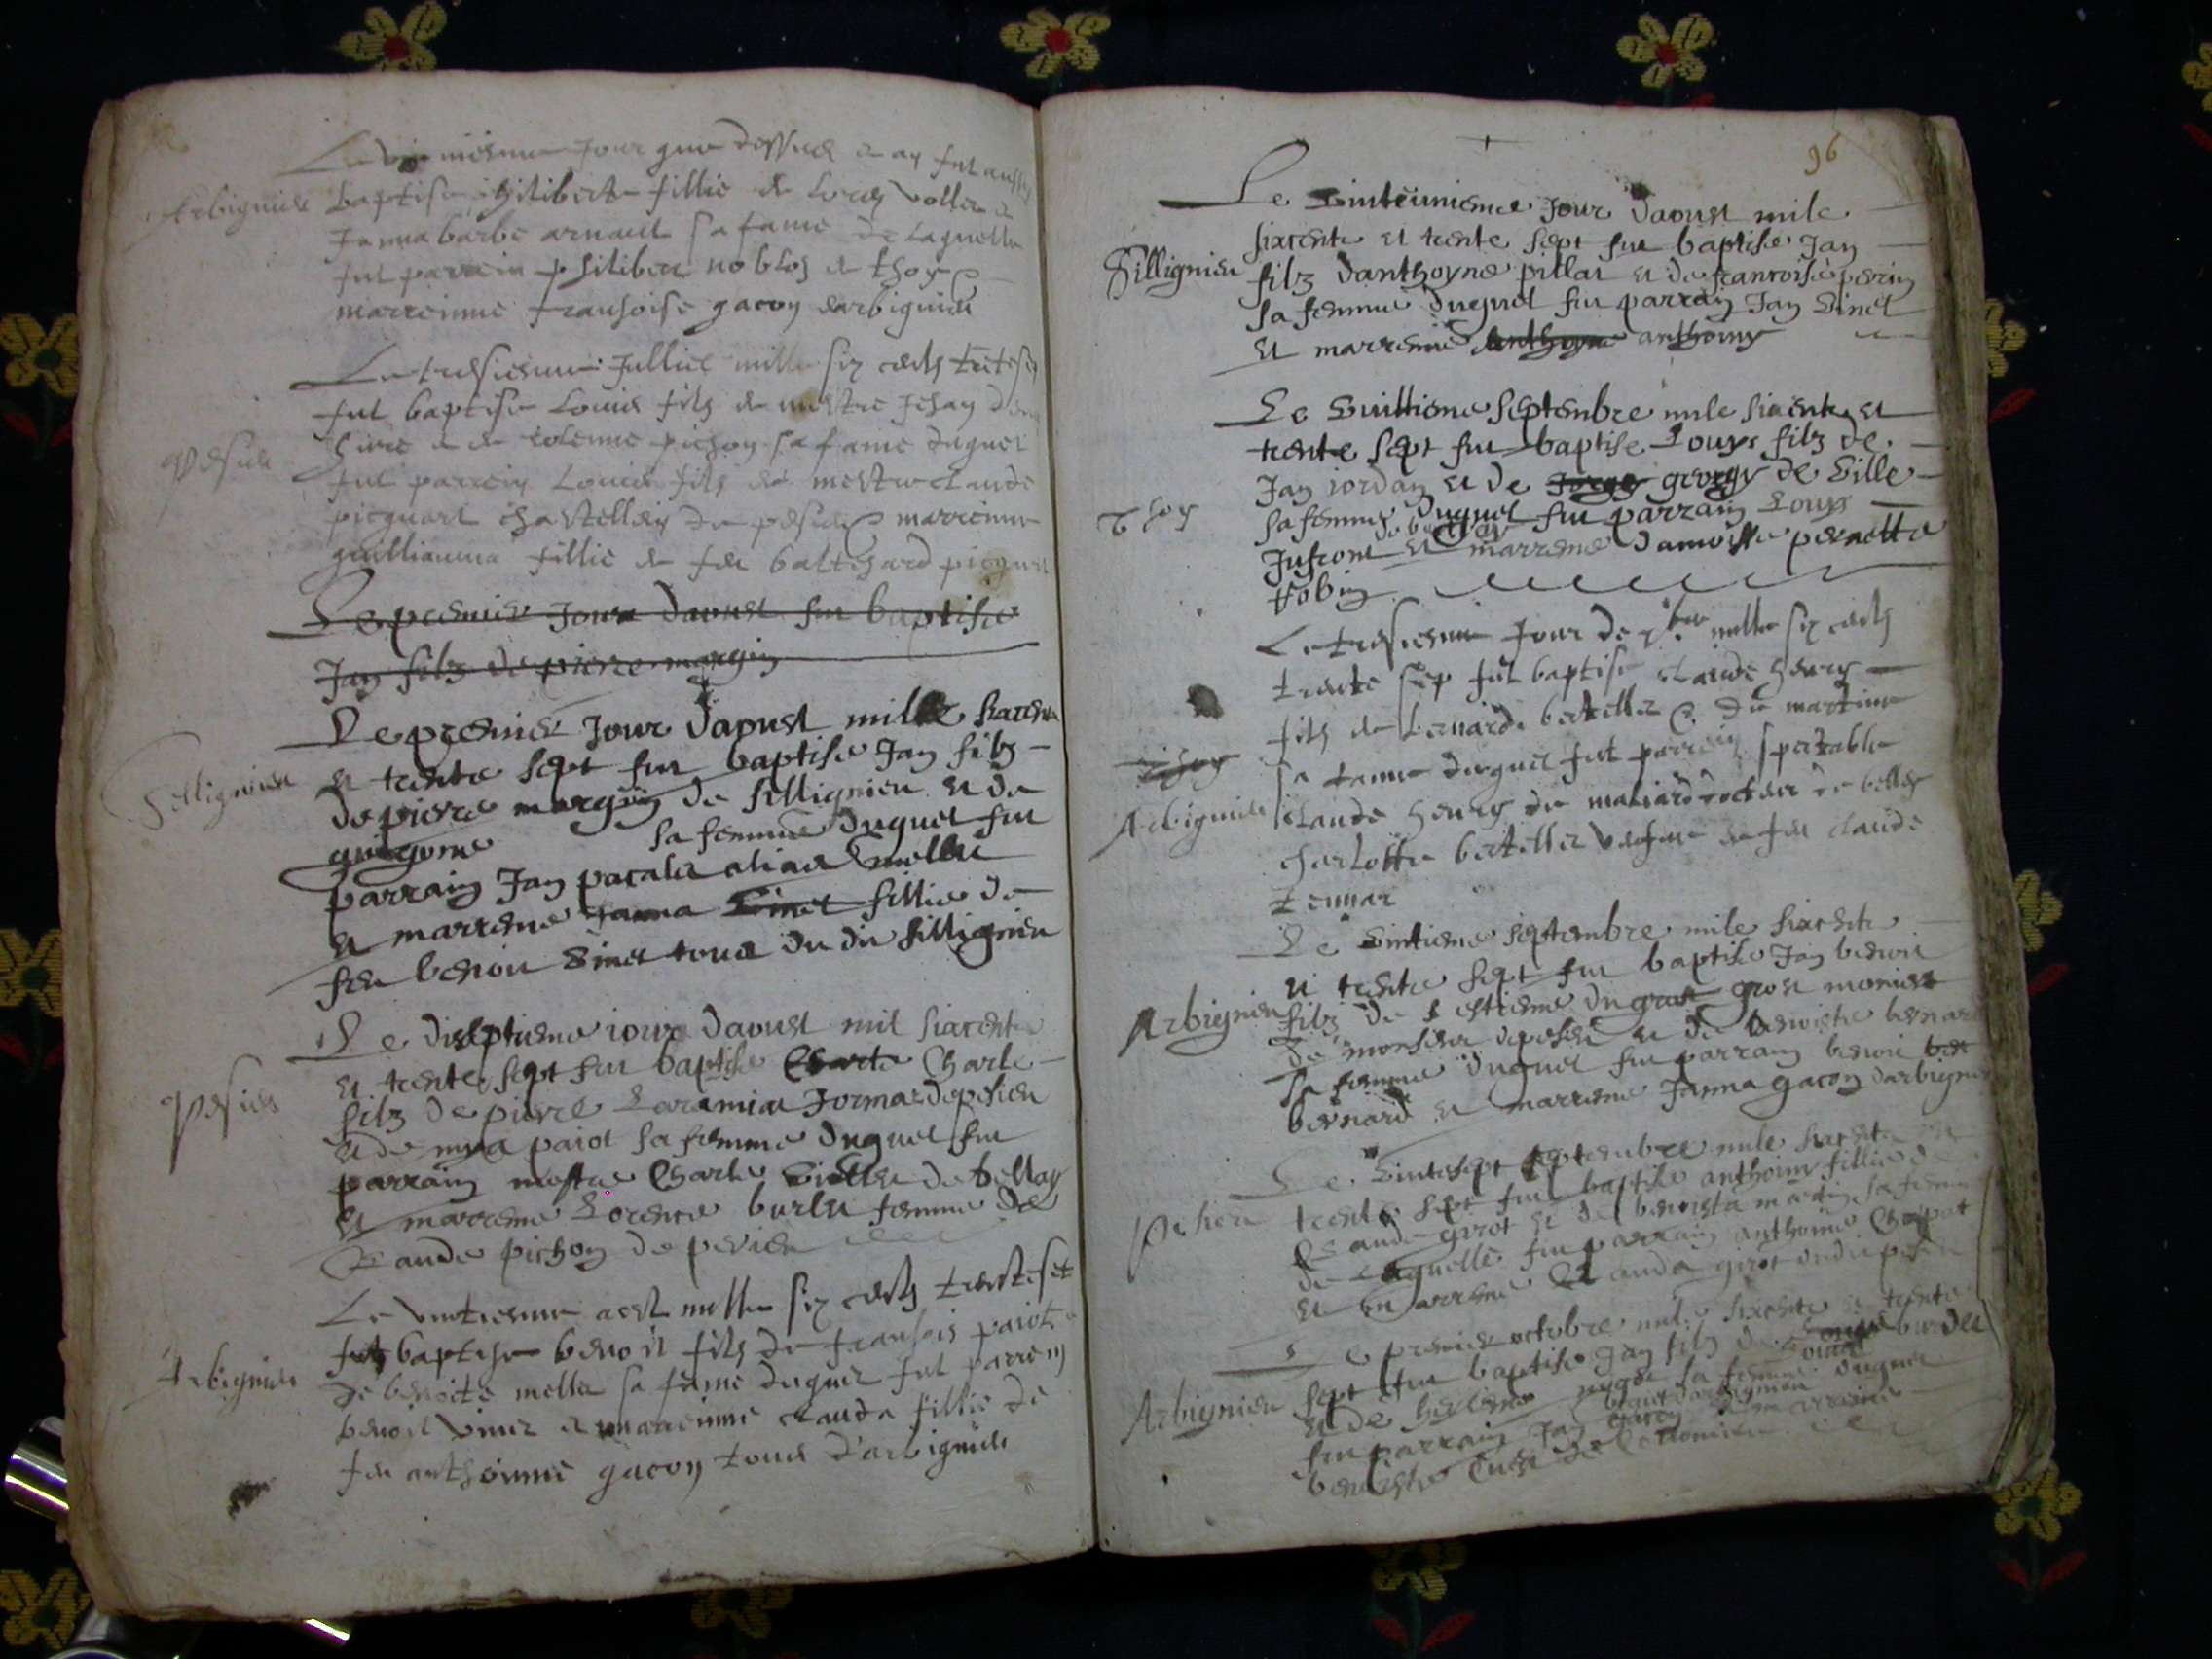 Le mesme Jour que dessus et an fut aussy
Arbignieu
baptise philiberte fillie de Loys vollet et
Janna barbe arnault sa fame de laquelle
fut parrein philibert noblos de thoy
marreinne fransoise gacon darbignieu
Le tresiesme Jullict mille six cents
Pesieu
fut baptise Louis fils de mestre Jehan
et de pichon sa fame duquel
fut parrein Louis fils de mestre claude
picquart chastellein de pesieu marreinne
guilliauma fillie de feu baltesard picquart
Le premier Jour daoust fut baptise
Jan filz de pierre margin
Le premier Jour daoust mille sixcents
Sillignieu
et trente sept fut baptise Jan filz
de pierre margin de sillignieu et de
guigone sa femme duquel fut
parrain Jan pacalet alias mollu
et marrene Janna Vinet fillie de
feu benoit Vinet tous du dit sillignieu
Le diseptieme iour daoust mil sixcents
Pesieu
et trente sept fut baptise Charle Charle
filz de pierre de pesieu
et de mya paiot sa femme duquel fut
parrain mestre Charle de bellay
et marrene Lorence burlet femme de
Claude pichon de pesieu
Le vintiesme aost mille six cents trenteset
Arbignieu
fut baptise benoit fils de fransois paiot
de benoite mollet sa fame duquel fut parrein
benoit Vinet et marreinne clauda fillie de
feu anthoinne gacon tous d'arbignieu
96
Le Vinteunieme Jour daoust mile
sixcents et trente sept fut baptise Jan
Sillignieu
filz danthoyne pillat et de francoise perrin
sa femme duquel fut parrain Jan Vinet
et marrenne anthoyne anthoiny
Le Vuittieme septembre mile sixcents et
trente sept fut baptise Louys filz de
Jan iordan et de georgy de Ville
Thoy
sa femme duquel fut parrain Louys
Jufront et marrene damoiselle pernette
robin
Le tresiesme Jour de 7bre mille six cents
trente sep fut baptise claude henry
fils de bernard bertellet et de martine
Thoy
sa fame duquel fut parrein spectable
Arbignieu
claude henry de maliard docteur de belley
charlotte bertellet vesfue de feu claude
tennar
Le Vintieme septembre mile sixcents
et trente sept fut baptise Jan benoit
Arbignieu
filz de estiene du gros monier
de monsieur depesieu et de benoiste bernard
sa femme duquel fut parrain benoit
bernard et marrene Janna gacon darbignieu
Le Vintesept septembre mile sixcents et
Pesieu
trente sept fut baptise anthoiny fillie de
Claude girot et de benoista martin sa femme
de laquelle fut parrain anthoine Chapot
et marrene Clauda girot dudit pesieu
Le premier octobre mil sixcents et trente
Arbignieu
sept fut baptise Jan filz de burdet
et de sa femme duquel
fut parrain Jan gacon darbignieu et marreine
benoiste